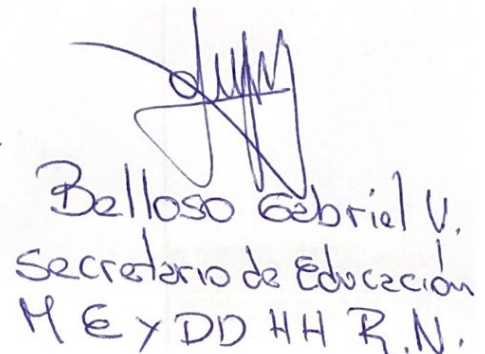 Belloso Gabriel V.
Secretario de Educación
M E y DD HH R.N.